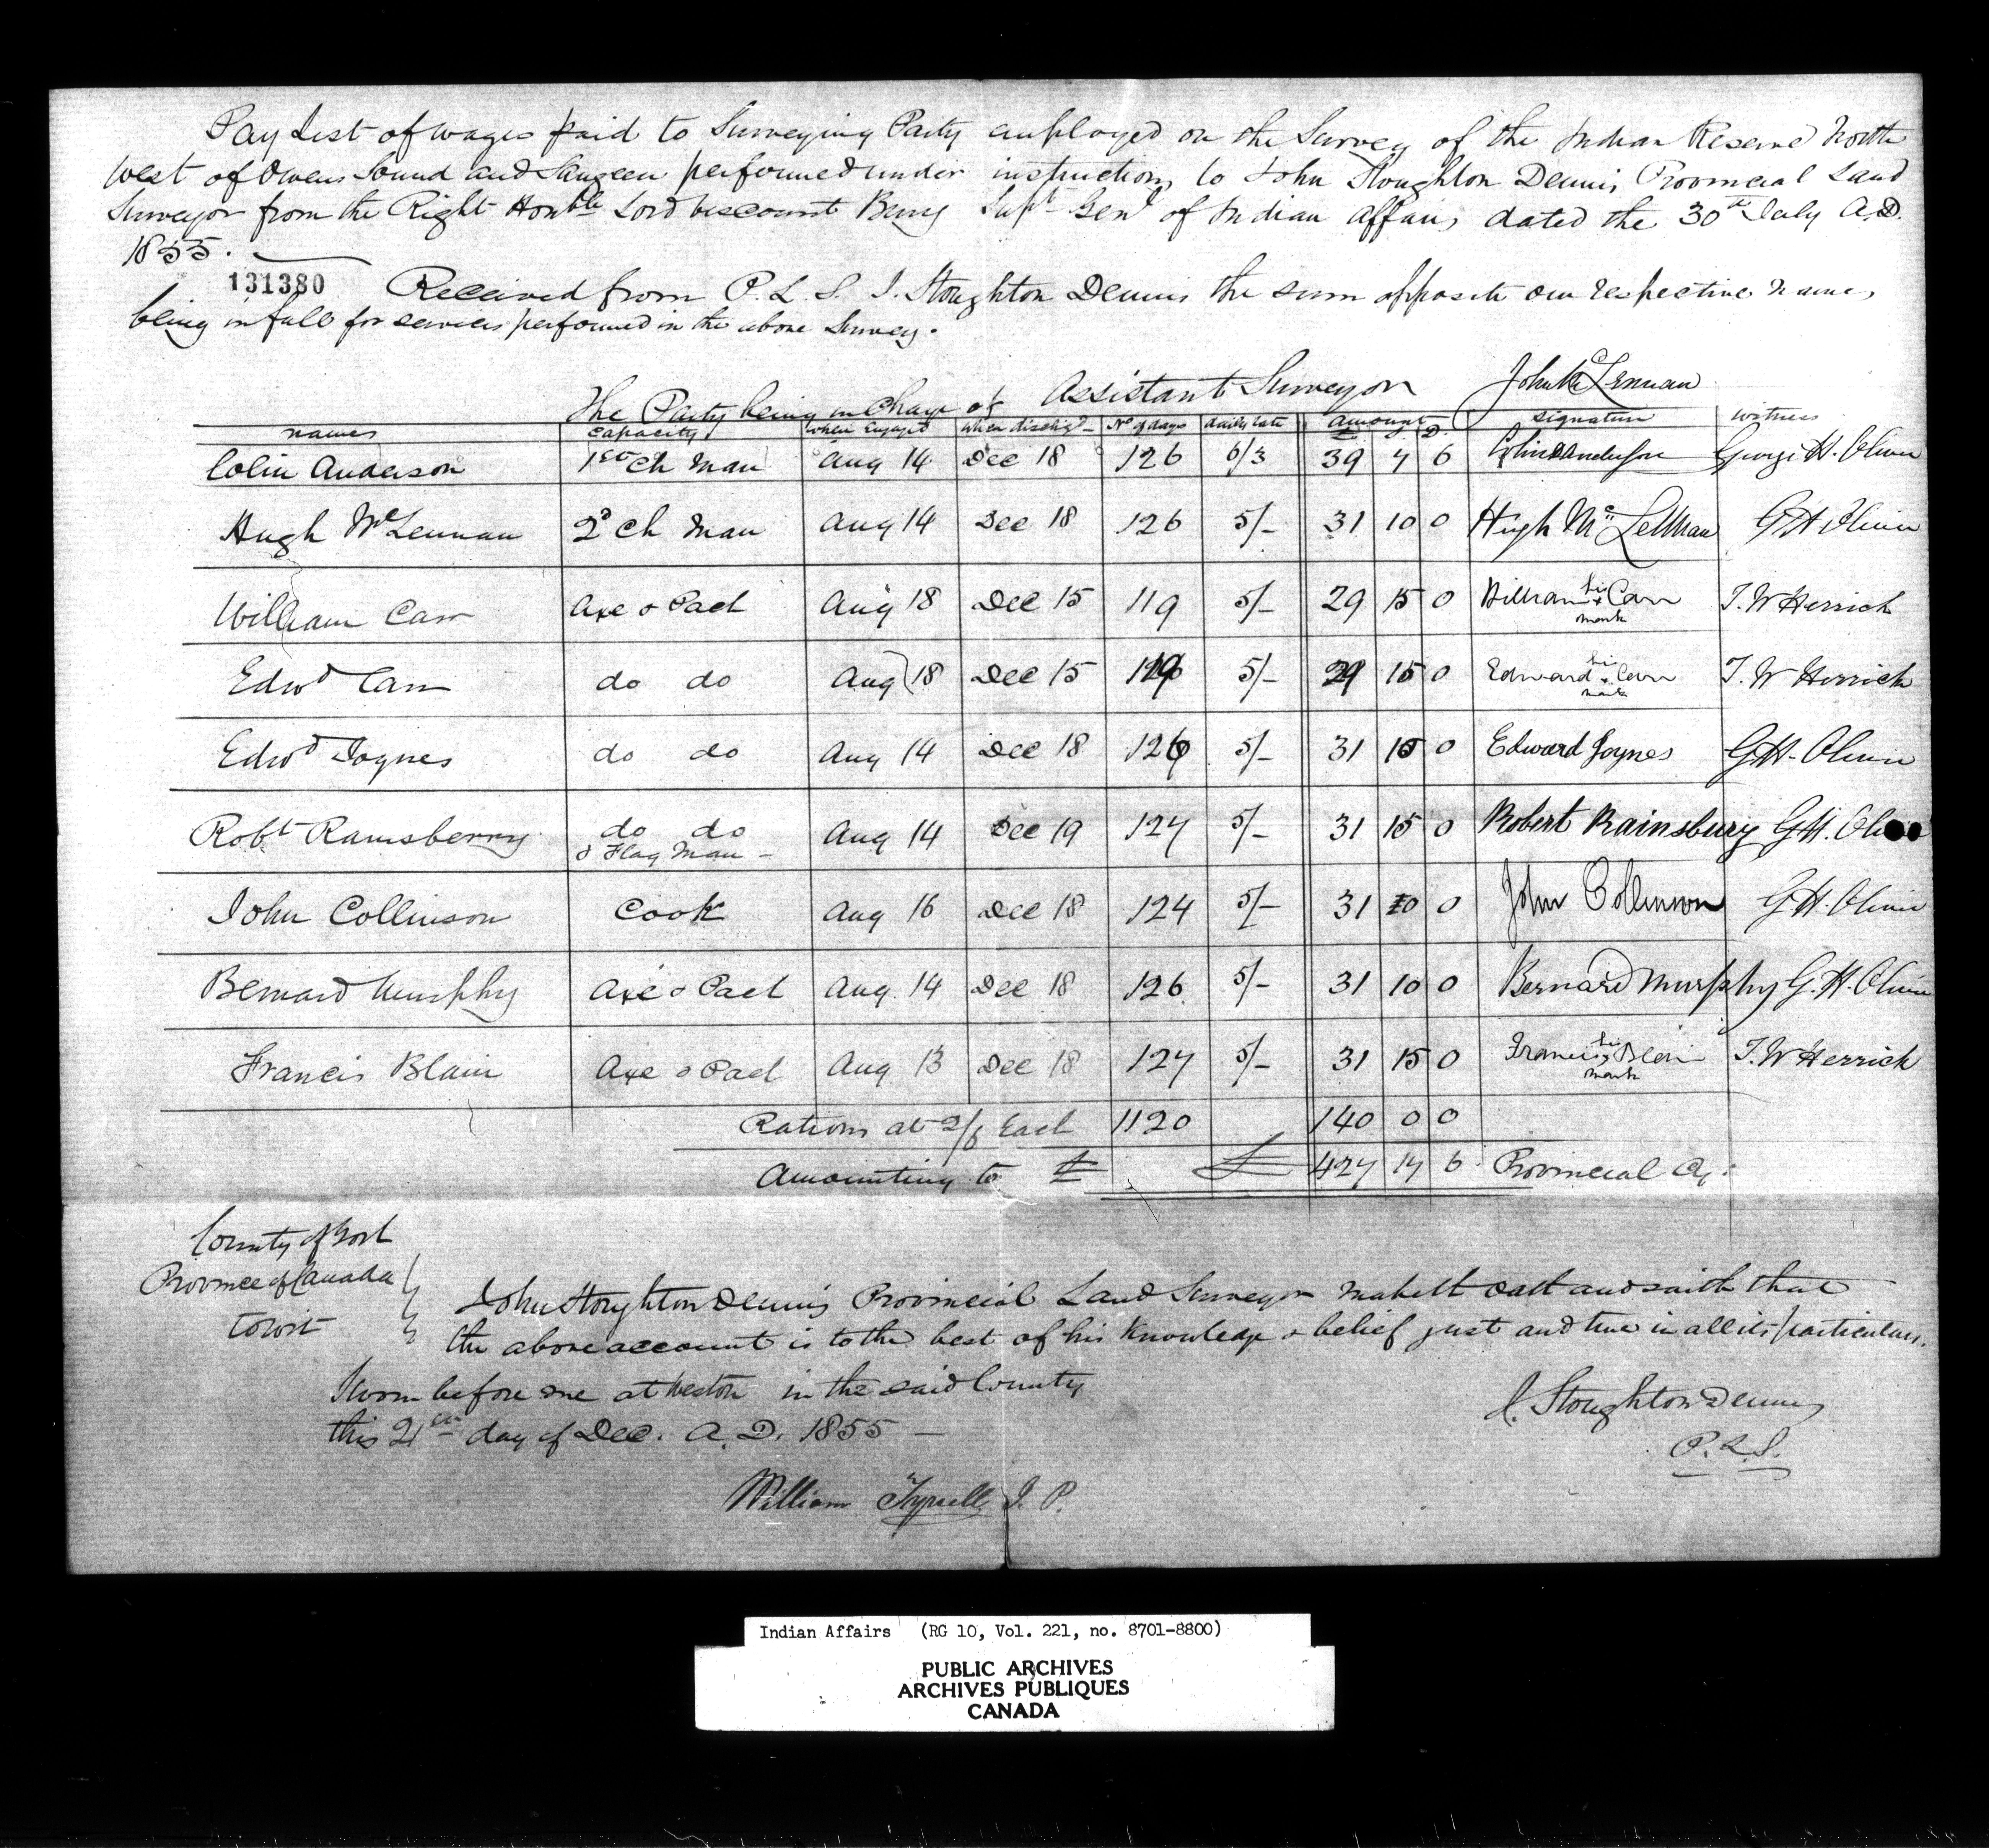 Pay List of wages paid to Surveying Party employed on the Survey of the Indian Reserve North
West of Owens Sound and Saugeen performed under instructions to John Stoughton Dennis Provincial Land
Surveyor from the Right Honble Lord Viscount Bury Supt Genl of Indian Affairs dated the 30th July A.D.
1855.
131380 Received from P. L. S. J. Stoughton Dennis the sum opposite our respective names,
being in full for services performed in the above Survey.
The Party being in Charge of Assistant Surveyor John McLennan
names capacity when Engag'd when dischg'd No of days daily rate Amount D signature witness
Colin Anderson 1st Ch Man Aug 14 Dec 18 126 6/3 39 7 6 Colin Anderson George H. Oliver
Hugh McLennan 2d Ch Man Aug 14 Dec 18 126 5/- 31 10 0 Hugh McLellnan G H Oliver
William Carr Axe & Pack Aug 18 Dec 15 119 5/- 29 15 0 William his x mark Carr T. W Herrick
Edwd Carr do do Aug 18 Dec 15 119 5/- 29 15 0 Edward his x mark Carr T. W Herrick
Edwd Joynes do do Aug 14 Dec 18 126 5/- 31 10 0 Edward Joynes G H. Oliver
Robt Ramsberry do do & Flag Man - Aug 14 Dec 19 127 5/- 31 15 0 Robert Rainsbury G H. Oliver
John Collinson Cook Aug 16 Dec 18 124 5/- 31 0 0 John Collinson G. H. Oliver
Bernard Murphy Axe & Pack Aug. 14 Dec 18 126 5/- 31 10 0 Bernard Murphy G. H. Oliver
Francis Blain Axe & Pack Aug 13 Dec 18 127 5/- 31 15 0 Francis his x mark Blain T. W Herrick
Rations at 2/6 Each 1120 140 0 0
Amounting to £ £ 427 17 6 Provincial Cy.
County of York
Province of Canada
to wit
John Stoughton Dennis Provincial Land Surveyor maketh oath and saith that
the above account is to the best of his Knowledge & belief just and true in all its particulars.
Sworn before me at Weston in the said County
this 21st day of Dec. A. D. 1855 -
J. Stoughton Dennis
P. L. S.
William Tyrrell J. P.
Indian Affairs (RG 10, Vol. 221, no. 8701-8800)
PUBLIC ARCHIVES
ARCHIVES PUBLIQUES
CANADA